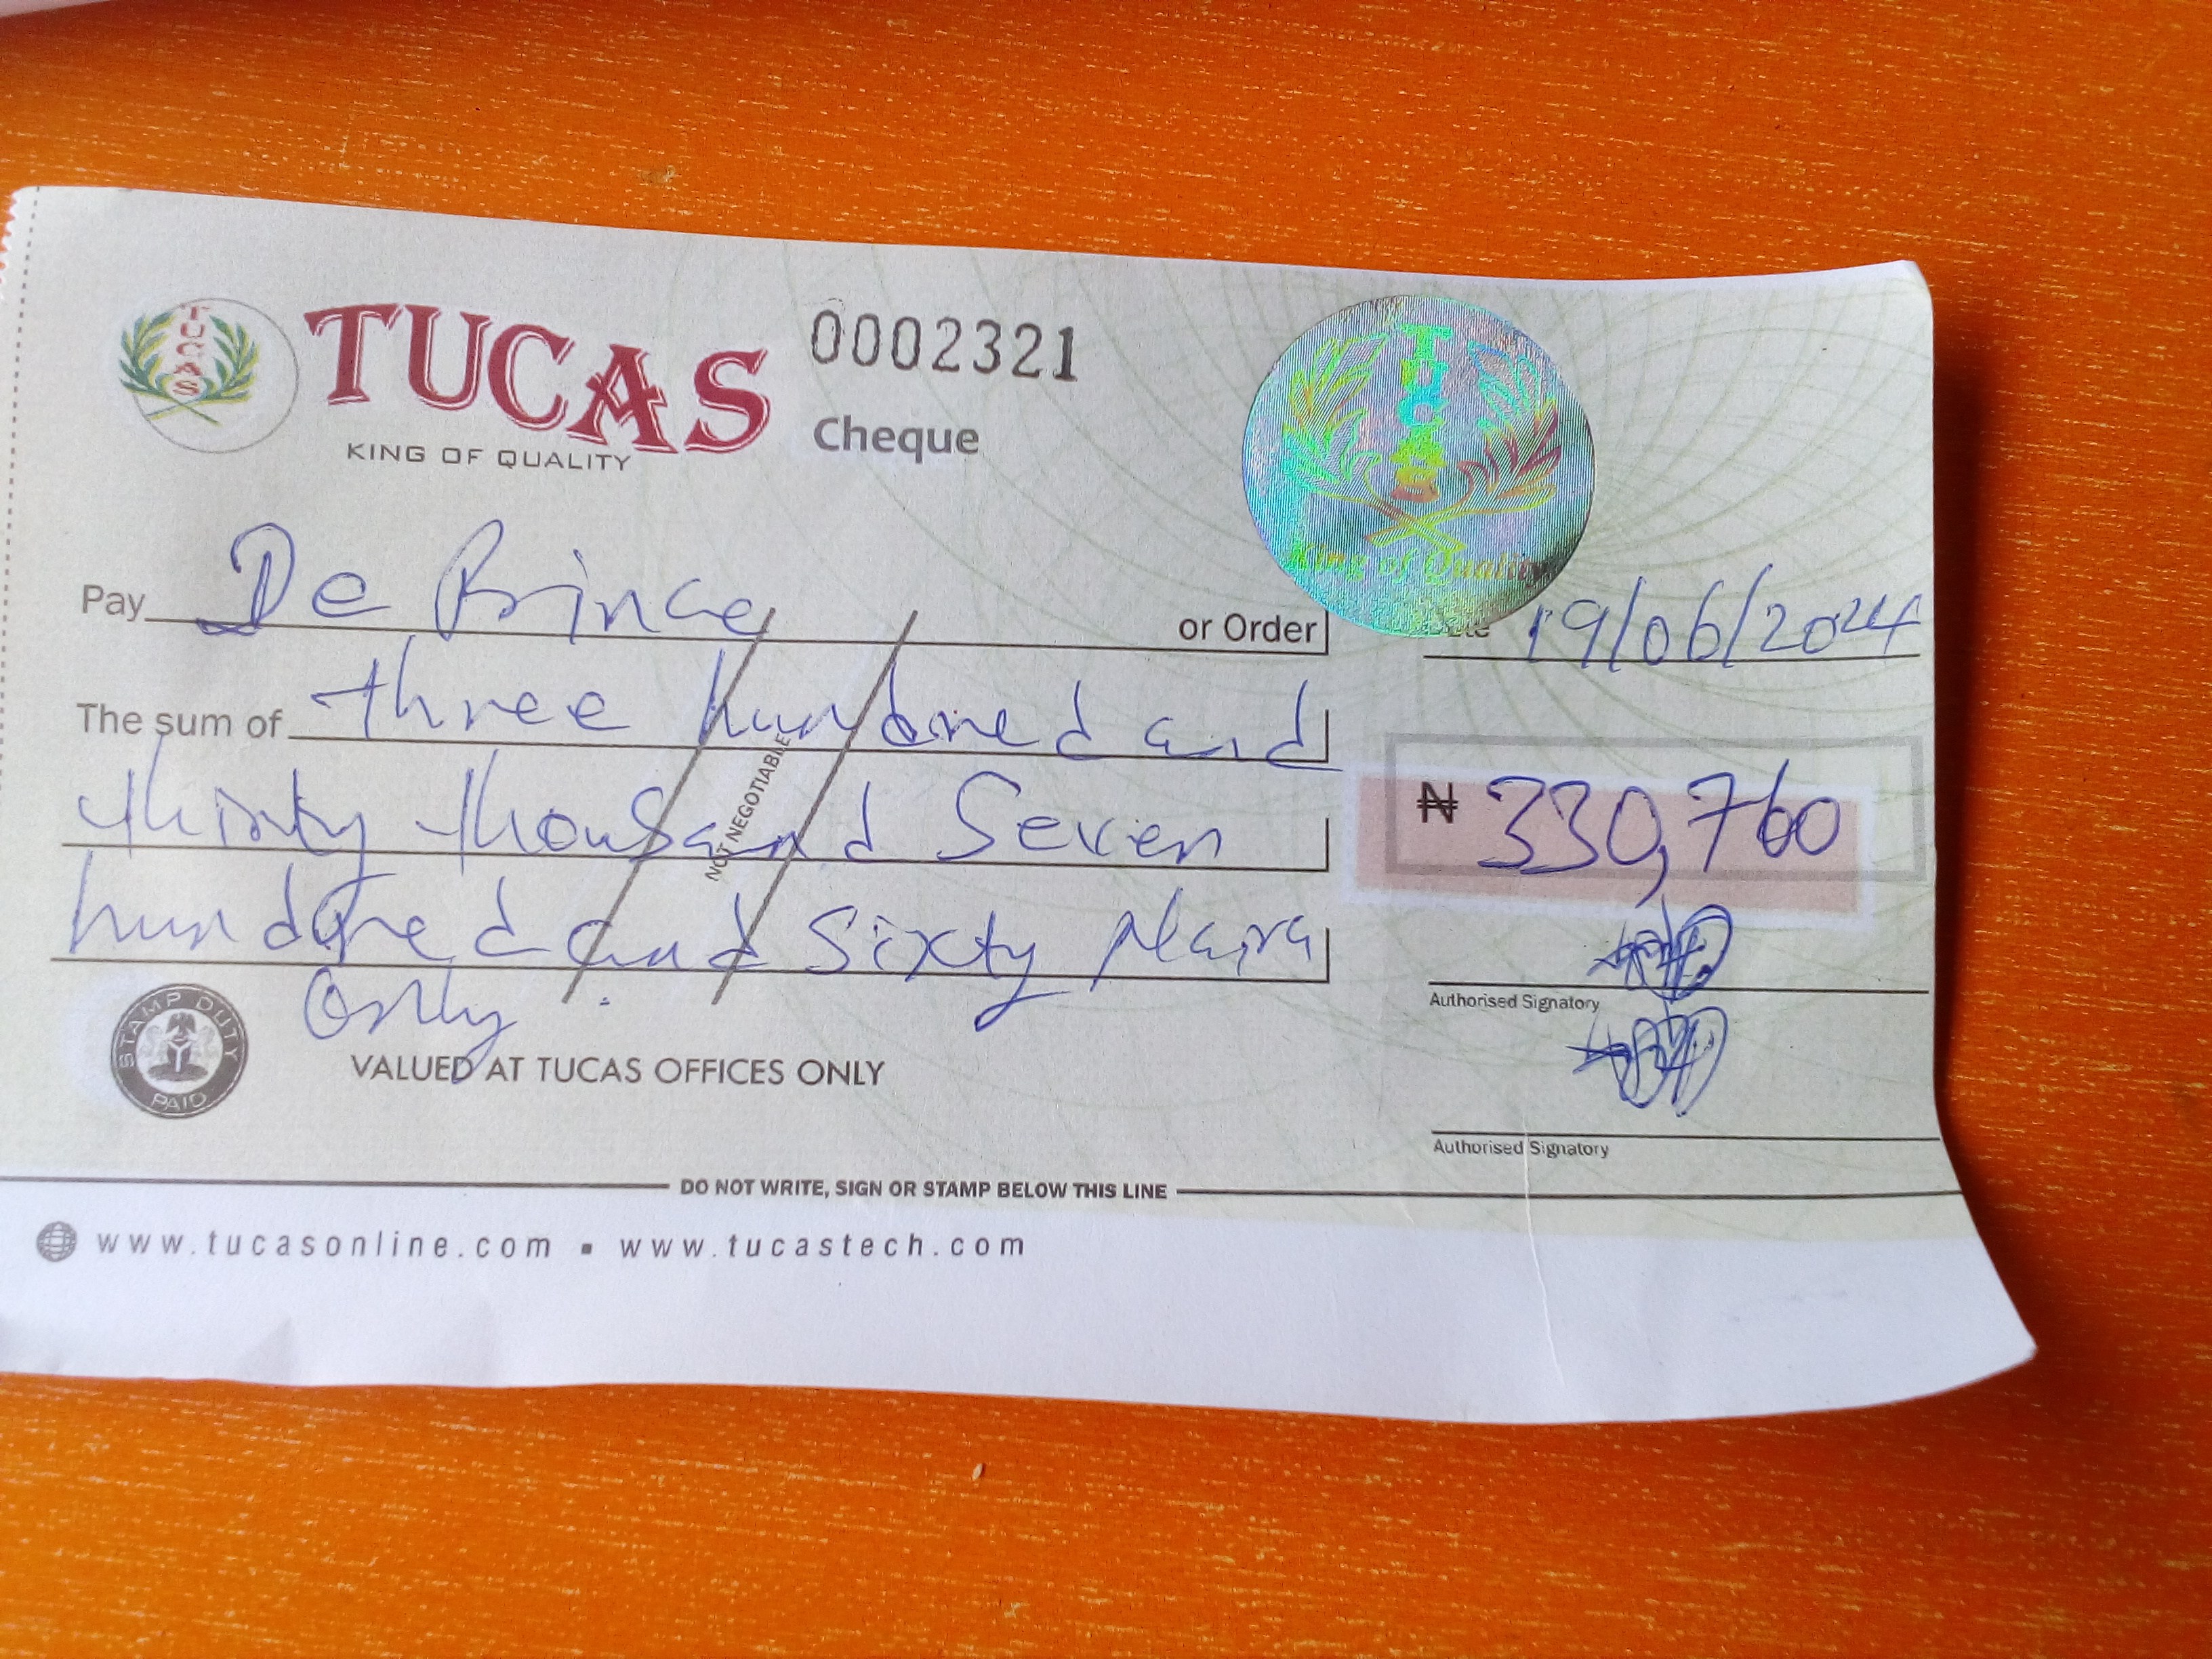 TUCAS
TUCAS
KING OF QUALITY
0002321
Cheque
TUCAS
King of Quality
Pay De Prince or Order
Date 19/06/2024
The sum of three hundred and
thirty thousand Seven
hundred and Sixty Naira
only.
NOT NEGOTIABLE
₦ 330,760
Authorised Signatory
Authorised Signatory
STAMP DUTY
PAID
VALUED AT TUCAS OFFICES ONLY
DO NOT WRITE, SIGN OR STAMP BELOW THIS LINE
www.tucasonline.com ▪ www.tucastech.com